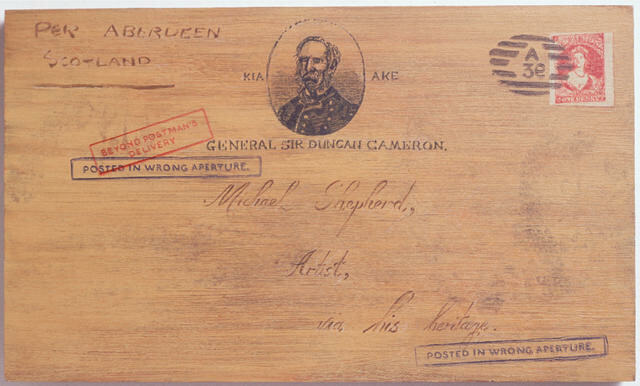 PER ABERDEEN
SCOTLAND
KIA AKE
A
3
GENERAL SIR DUNCAN CAMERON.
BEYOND POSTMAN'S
DELIVERY
POSTED IN WRONG APERTURE.
Michael Shepherd.,
Artist,
via his heritage.
POSTED IN WRONG APERTURE.